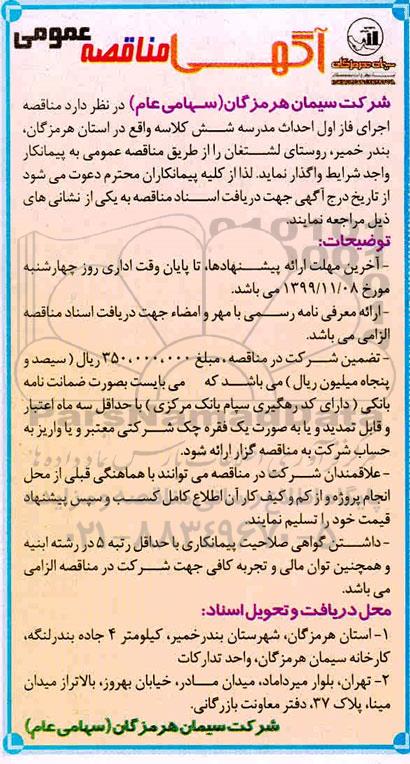 آگهی مناقصه عمومی
سیمان هرمزگان
شرکت سیمان هرمزگان(سهامی عام) در نظر دارد مناقصه
اجرای فاز اول احداث مدرسه شش کلاسه واقع در استان هرمزگان،
بندر خمیر، روستای لشتغان را از طریق مناقصه عمومی به پیمانکار
واجد شرایط واگذار نماید. لذا از کلیه پیمانکاران محترم دعوت می شود
از تاریخ درج آگهی جهت دریافت اسناد مناقصه به یکی از نشانی های
ذیل مراجعه نمایند.
توضیحات:
-آخرین مهلت ارائه پیشنهادها، تا پایان وقت اداری روز چهارشنبه
مورخ ۱۳۹۹/۱۱/۰۸ می باشد.
-ارائه معرفی نامه رسمی با مهر و امضاء جهت دریافت اسناد مناقصه
الزامی می باشد.
-تضمین شرکت در مناقصه، مبلغ ۳۵۰,۰۰۰,۰۰۰ ریال (سیصد و
پنجاه میلیون ریال) می باشد که می بایست بصورت ضمانت نامه
بانکی (دارای کد رهگیری سپام بانک مرکزی) با حداقل سه ماه اعتبار
و قابل تمدید و یا به صورت یک فقره چک شرکتی معتبر و یا واریز به
حساب شرکت به مناقصه گزار ارائه شود.
-علاقمندان شرکت در مناقصه می توانند با هماهنگی قبلی از محل
انجام پروژه و از کم و کیف کار آن اطلاع کامل کسب و سپس پیشنهاد
قیمت خود را تسلیم نمایند.
-داشتن گواهی صلاحیت پیمانکاری با حداقل رتبه ۵ در رشته ابنیه
و همچنین توان مالی و تجربه کافی جهت شرکت در مناقصه الزامی
می باشد.
محل دریافت و تحویل اسناد:
۱- استان هرمزگان، شهرستان بندرخمیر، کیلومتر ۴ جاده بندرلنگه،
کارخانه سیمان هرمزگان، واحد تدارکات
۲- تهران، بلوار میرداماد، میدان مادر، خیابان بهروز، بالاتراز میدان
مینا، پلاک ۳۷، دفتر معاونت بازرگانی.
شرکت سیمان هرمزگان(سهامی عام)
۰۲۱-۸۸۳۴۹۶۷۰-۵